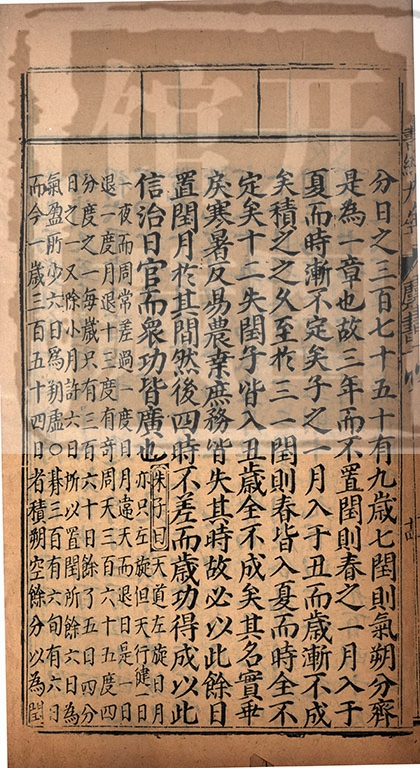 分日之三百七十五十有九歲七閏則氣朔分齊
是為一章也故三年而不置閏則春之一月入于
夏而時漸不定矣子之一月入于丑而歲漸不成
矣積之之久至於三一閏則春皆入夏而時全不
定矣十二失閏子皆入丑歲全不成矣其名實乖
戾寒暑反易農桒庶務皆失其時故必以此餘日
置閏月於其間然後四時不差而歲功得成以此
信治日官而衆功皆廣也朱子曰天道左旋日月
亦只左旋但天行健一日
一夜而周常差過一度日月違天而退日是一日
退一度月退十三度有奇周天三百六十五度四
分度之一每歲只有三百六十日餘了五日四分
日之一又除小月許六日所以置閏所餘六日為
氣盈所少六日為朔虛○朞三百有六旬有六日
而今一歲三百五十四日者積朔空餘分以為閏